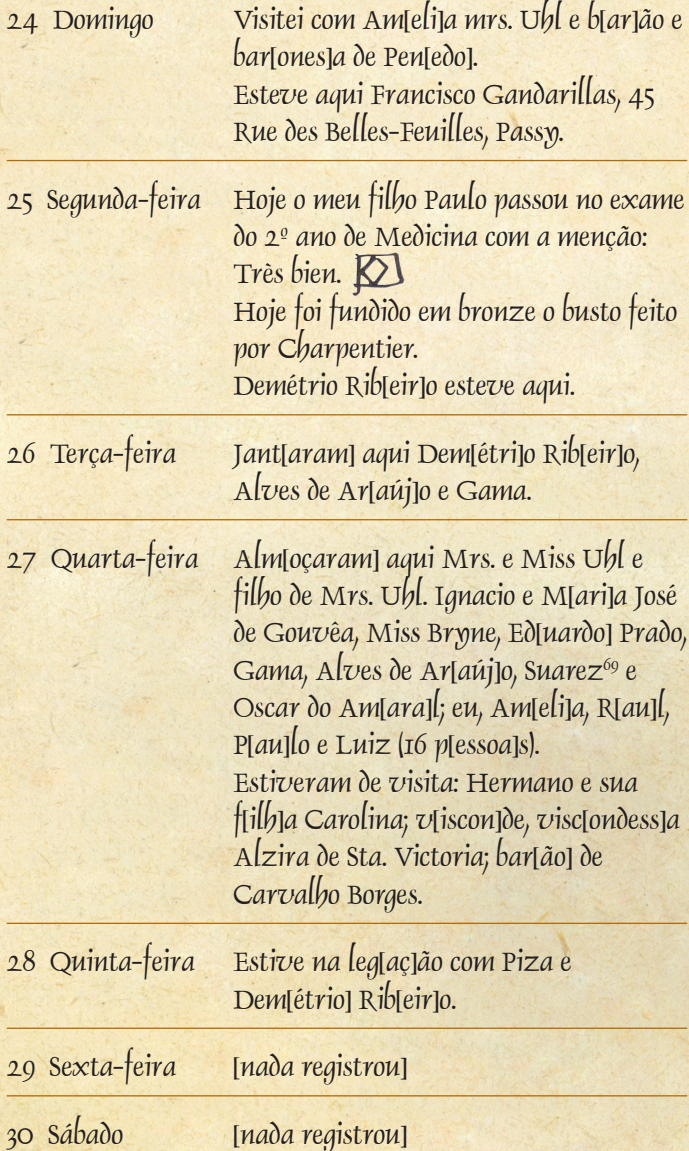 24 Domingo Visitei com Am[eli]a mrs. Uhl e b[ar]ão e
bar[ones]a de Pen[edo].
Esteve aqui Francisco Gandarillas, 45
Rue des Belles-Feuilles, Passy.
25 Segunda-feira Hoje o meu filho Paulo passou no exame
do 2º ano de Medicina com a menção:
Très bien.
Hoje foi fundido em bronze o busto feito
por Charpentier.
Demétrio Rib[eir]o esteve aqui.
26 Terça-feira Jant[aram] aqui Dem[étri]o Rib[eir]o,
Alves de Ar[aúj]o e Gama.
27 Quarta-feira Alm[oçaram] aqui Mrs. e Miss Uhl e
filho de Mrs. Uhl. Ignacio e M[ari]a José
de Gouvêa, Miss Bryne, Ed[uardo] Prado,
Gama, Alves de Ar[aúj]o, Suarez69 e
Oscar do Am[ara]l; eu, Am[eli]a, R[au]l,
P[au]lo e Luiz (16 p[essoa]s).
Estiveram de visita: Hermano e sua
f[ilh]a Carolina; v[iscon]de, visc[ondess]a
Alzira de Sta. Victoria; bar[ão] de
Carvalho Borges.
28 Quinta-feira Estive na leg[aç]ão com Piza e
Dem[étrio] Rib[eir]o.
29 Sexta-feira [nada registrou]
30 Sábado [nada registrou]